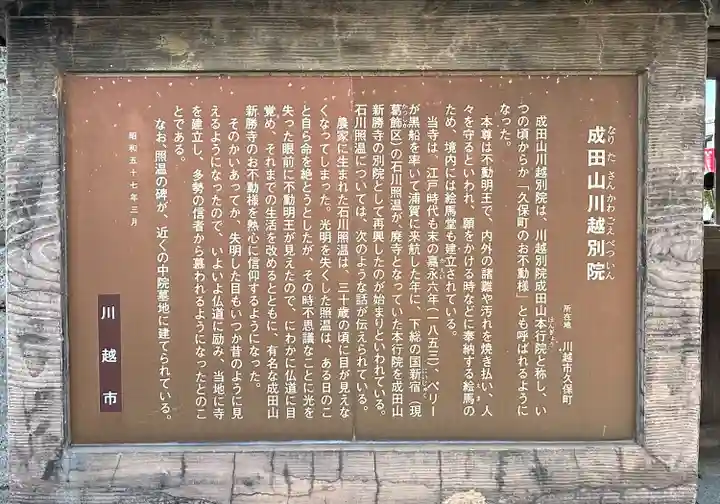 成田山川越別院
なりたさんかわごえべついん
所在地 川越市久保町
成田山川越別院は、川越別院成田山本行院と称し、い
ほんぎょう
つの頃からか「久保町のお不動様」とも呼ばれるように
なった。
本尊は不動明王で、内外の諸難や汚れを焼き払い、人
々を守るといわれ、願をかける時などに奉納する絵馬の
えま
ため、境内には絵馬堂も建立されている。
当寺は、江戸時代も末の嘉永六年(一八五三)、ペリー
かえい
が黒船を率いて浦賀に来航した年に、下総の国新宿(現
にいじゅく
葛飾区)の石川照温が、廃寺となっていた本行院を成田山
かつしか
新勝寺の別院として再興したのが始まりといわれている。
石川照温については、次のような話が伝えられている。
農家に生まれた石川照温は、三十歳の頃に目が見えな
くなってしまった。光明を失くした照温は、ある日のこ
と自ら命を絶とうとしたが、その時不思議なことに光を
失った眼前に不動明王が見えたので、にわかに仏道に目
覚め、それまでの生活を改めるとともに、有名な成田山
新勝寺のお不動様を熱心に信仰するようになった。
そのかいあってか、失明した目もいつか昔のように見
えるようになったので、いよいよ仏道に励み、当地に寺
を建立し、多勢の信者から慕われるようになったとのこ
とである。
なお、照温の碑が、近くの中院墓地に建てられている。
昭和五十七年三月
川越市